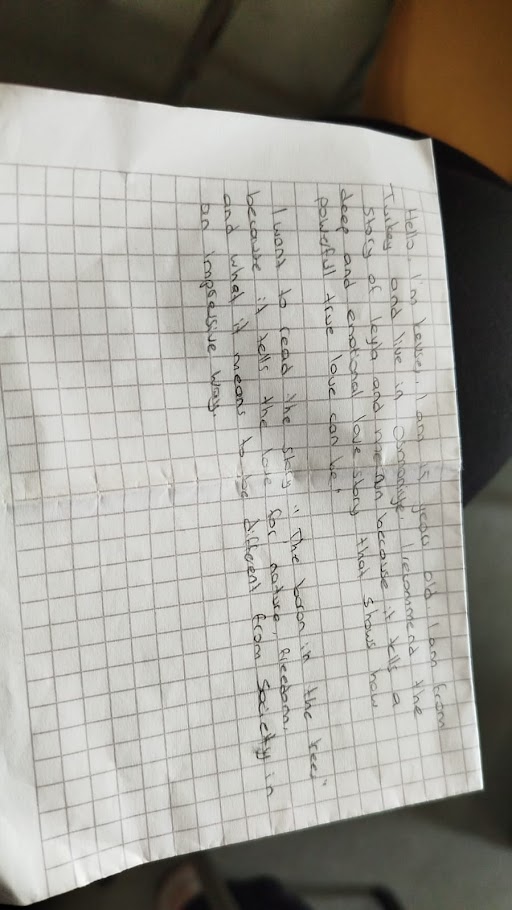 Hello, I'm I am 15 years old. I am from
Turkey and live in Osmaniye. I recommend the
Story of leyla and mecnun because it tells a
deep and emotional love story that shows how
powerfull true love can be.
I want to read the story "The baron in the trees"
because it tells the love for nature, freedom,
and what it means to be different from society in
an impressive way.